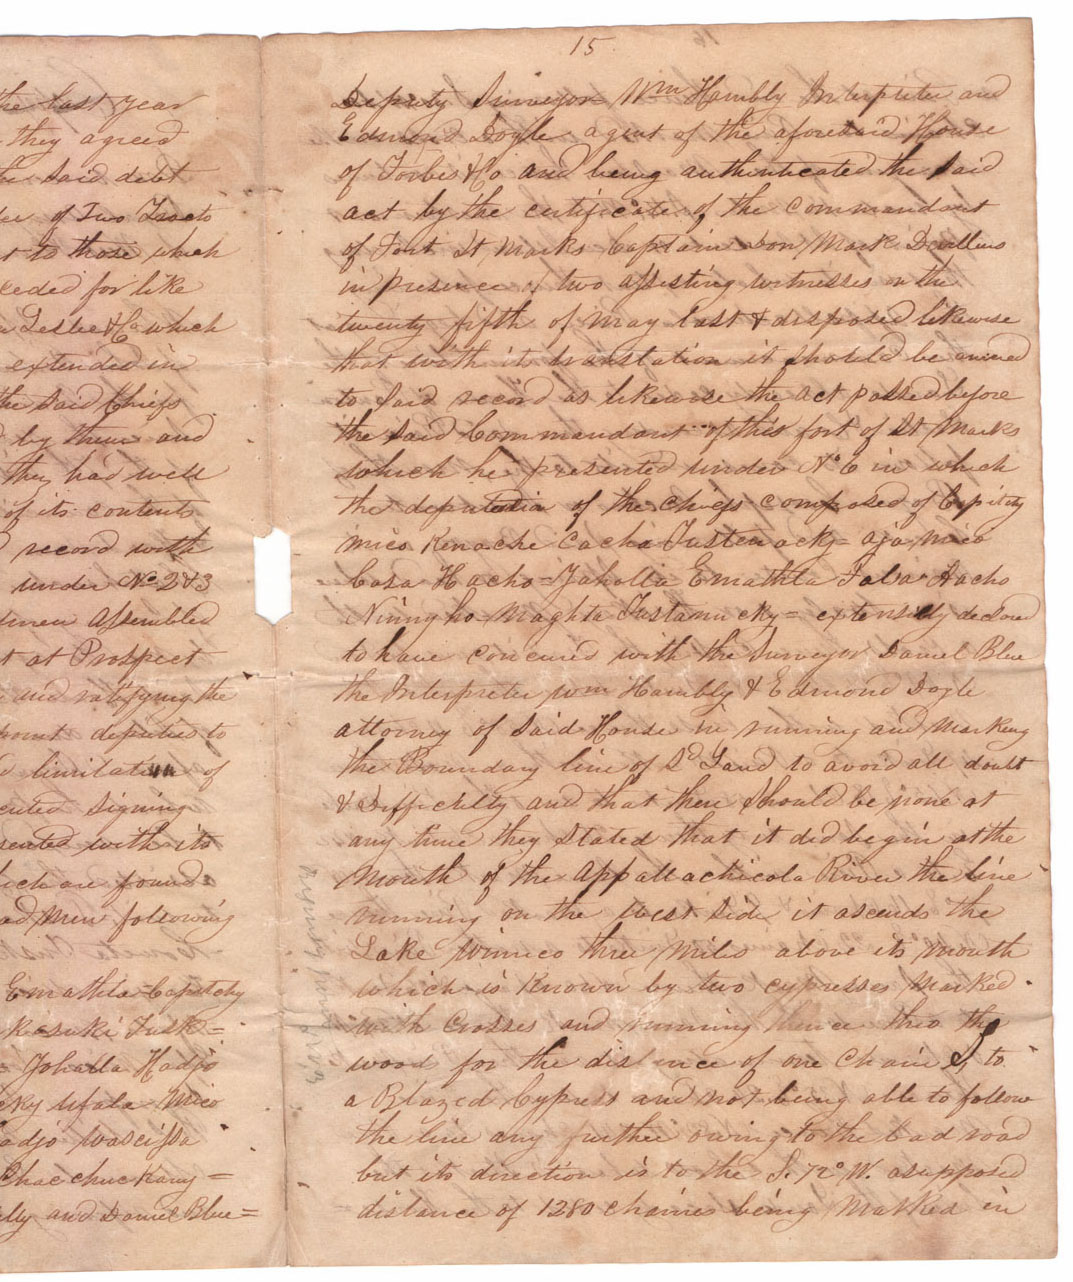 the last year
they agreed
the said debt
of Two Tracts
to those which
ceeded for like
Leslie & Co which
extended in
the said Chiefs
by them and
they had well
of its contents
record with
under No 2 & 3
assembled
at Prospect
and ratifying the
deputed to
limitation of
signing
sented with its
which are found
ad men following
Emathla = Capitchy
kesuki Tusk =
Johalla Hadjo
cky Ufala Mico
adjo Wascissa
Chacchuckany =
bly and Daniel Blue =
15
Deputy Surveyor Wm Hambly Interpreter and
Edmond Doyle agent of the aforesaid House
of Forbes & Co and being authenticated the said
act by the certificate of the commandant
of Fort St Marks Captain Don Mark Devilliers
in presence of two assisting witnesses on the
twenty fifth of May last & disposed likewise
that with its translation it should be annexed
to said record as likewise the act passed before
the said Commandant of this fort of St Marks
which he presented under No 6 in which
the deputation of the chiefs composed of Capitchy
mico Kenache Cacha Tustenacky = aja mico
Cosa Hacho = Jaholla Emathla Falsa Hacho
Niningho Maghta Tustanucky = extensively declared
to have concured with the Surveyor Daniel Blue
the Interpreter Wm Hambly & Edmond Doyle
attorney of said House in running and marking
the Boundary line of Sd Land to avoid all doubt
& difficulty and that there should be none at
any time they stated that it did begin at the
mouth of the Appallachicola River the line
running on the West side it ascends the
Lake Wimico three miles above its mouth
which is known by two cypresses marked
with Crosses and running thence thro the
wood for the distance of one chain S to
a Blazed Cypress and not being able to follow
the line any further owing to the bad road
but its direction is to the S. 72° W. a supposed
distance of 1280 chaines being marked in